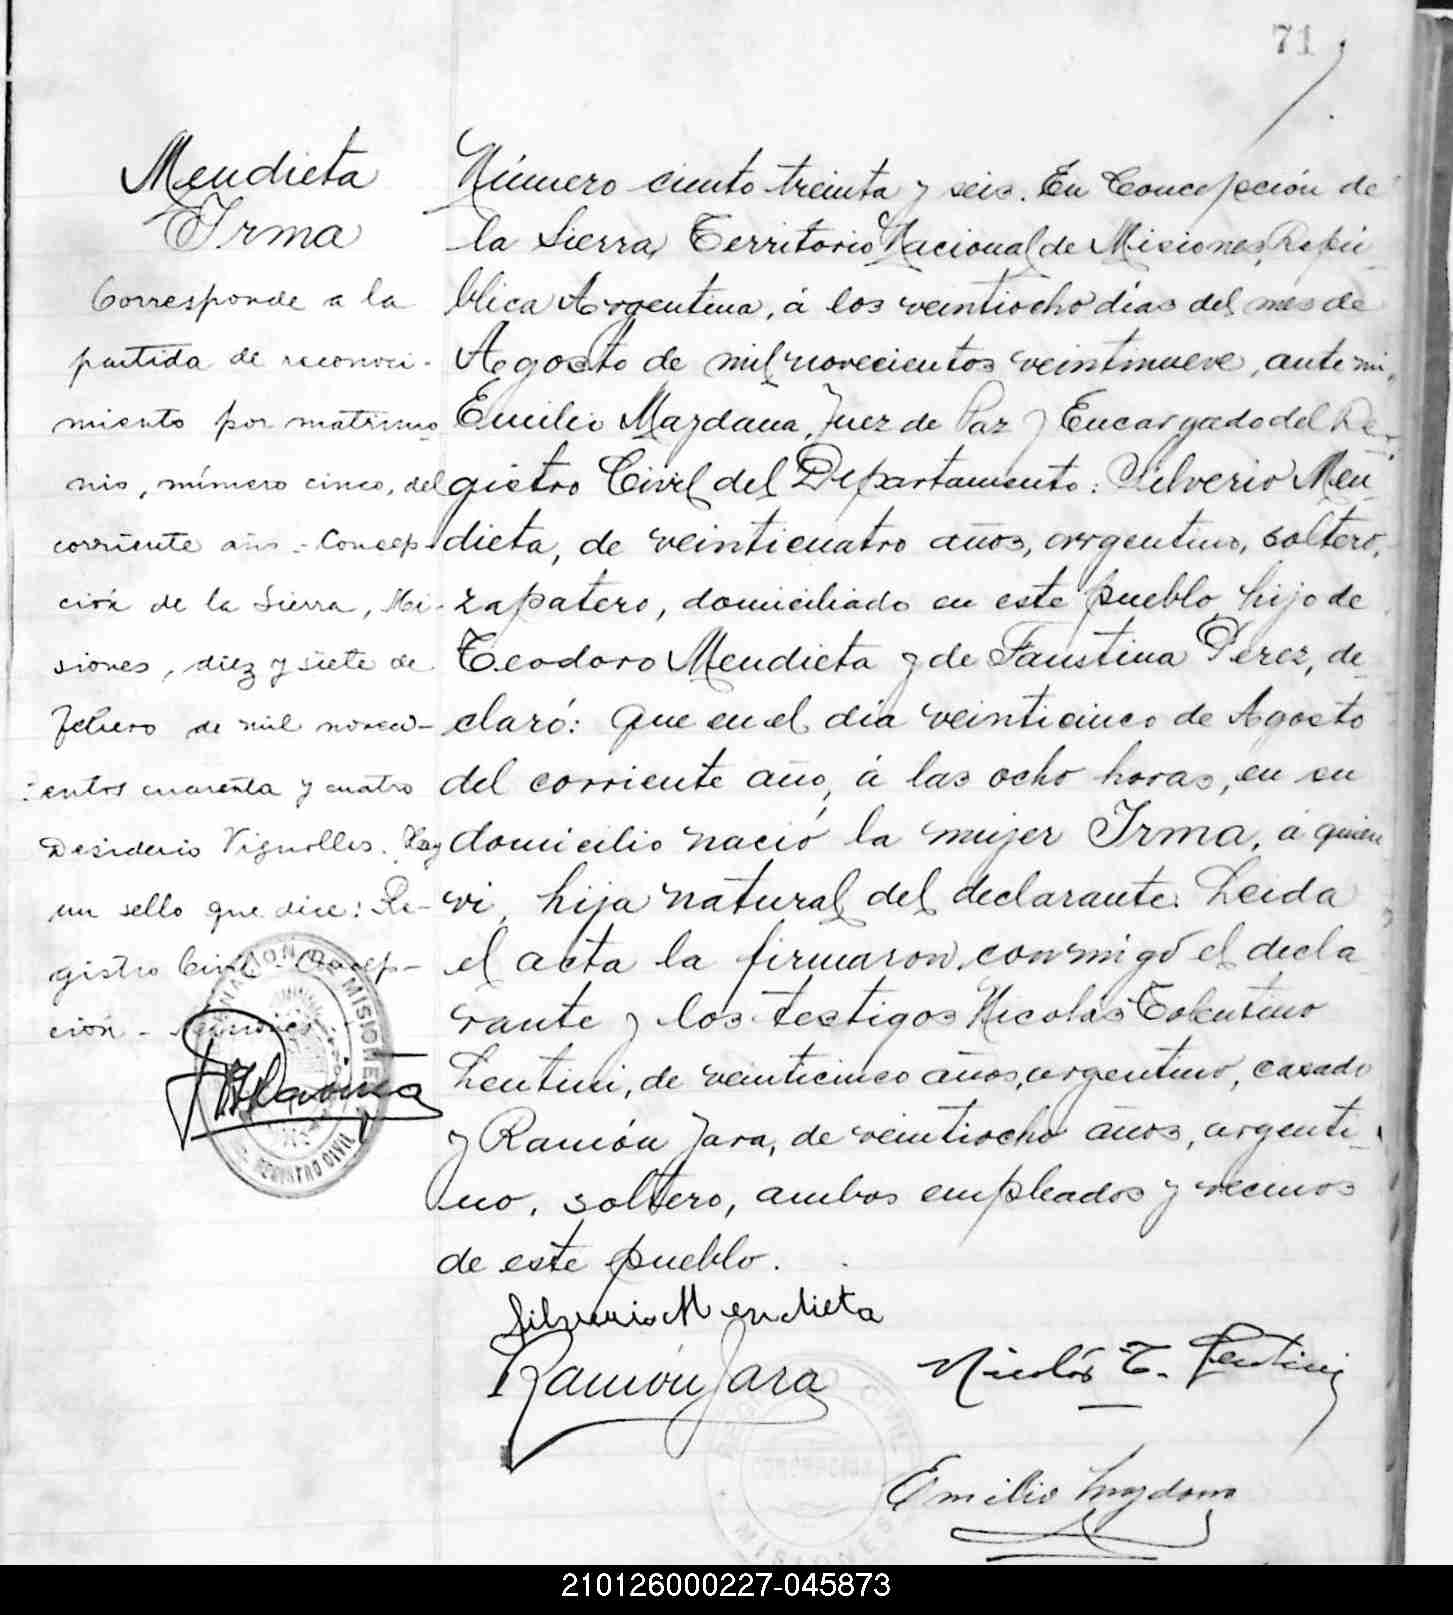 71
Mendieta
Irma
Corresponde a la
partida de reconoci-
miento por matrimo
nio, número cinco, del
corriente año - Concep-
ción de la Sierra, Mi-
siones, diez y siete de
Febrero de mil noveci-
entos cuarenta y cuatro
Desiderio Vignolles. Hay
un sello que dice: Re-
gistro Civil - Concep-
ción - Misiones
Número ciento treinta y seis. En Concepción de
la Sierra, Territorio Nacional de Misiones, Repú
blica Argentina, á los veintiocho días del mes de
Agosto de mil novecientos veintinueve, ante mi,
Emilio Mazdana, Juez de Paz y Encargado del Re
gistro Civil del Departamento: Silverio Men
dieta, de veinticuatro años, argentino, soltero,
zapatero, domiciliado en este pueblo, hijo de
Teodoro Mendieta y de Faustina Perez, de
claró: Que en el día veinticinco de Agosto
del corriente año, á las ocho horas, en su
domicilio nació la mujer Irma, á quien
vi, hija natural del declarante. Leida
el acta la firmaron conmigo el decla
rante y los testigos Nicolás Tolentino
Lentini, de veinticinco años, argentino, casado
y Ramón Jara, de veintiocho años, argenti
no, soltero, ambos empleados y vecinos
de este pueblo.
Silverio Mendieta
Ramón Jara
Nicolás T. Lentini
Emilio Mazdana
REGISTRO CIVIL
MISIONES
210126000227-045873